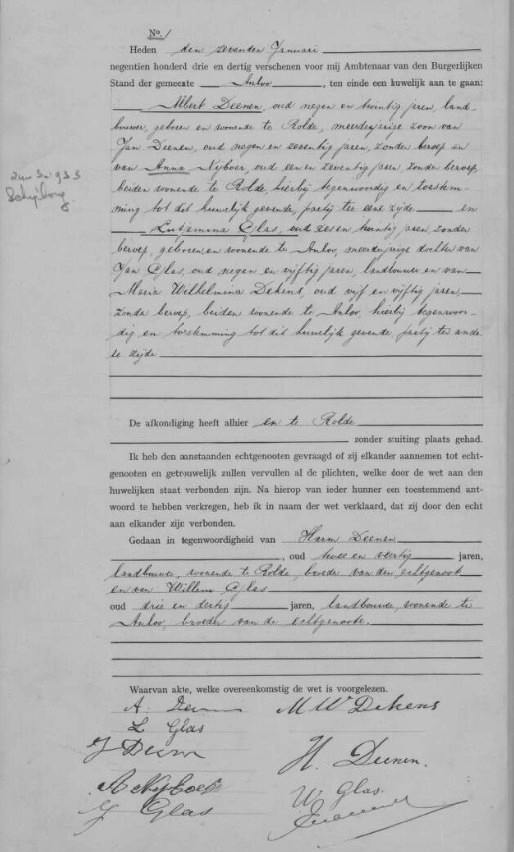 No. 1
Heden den zevenden Januari
negentien honderd drie en dertig verschenen voor mij Ambtenaar van den Burgerlijken
Stand der gemeente Anloo, ten einde een huwelijk aan te gaan:
Albert Deenen, oud negen en twintig jaren, land-
bouwer, geboren en wonende te Rolde, meerderjarige zoon van
Jan Deenen, oud negen en zeventig jaren, zonder beroep en
van Anna Nijboer, oud een en zeventig jaren, zonder beroep,
beiden wonende te Rolde, hierbij tegenwoordig en toestem-
ming tot dit huwelijk gevende, partij ter eene zijde en
Lutgmina Glas, oud zes en twintig jaren, zonder
beroep, geboren en wonende te Anloo, meerderjarige dochter van
Jan Glas, oud negen en vijftig jaren, landbouwer en van
Maria Wilhelmina Dekens, oud vijf en vijftig jaren,
zonder beroep, beiden wonende te Anloo, hierbij tegenwoor-
dig en toestemming tot dit huwelijk gevende, partij ter ande-
re zijde
De afkondiging heeft alhier en te Rolde
zonder stuiting plaats gehad.
Ik heb den aanstaanden echtgenooten gevraagd of zij elkander aannemen tot echt-
genooten en getrouwelijk zullen vervullen al de plichten, welke door de wet aan den
huwelijken staat verbonden zijn. Na hierop van ieder hunner een toestemmend ant-
woord te hebben verkregen, heb ik in naam der wet verklaard, dat zij door den echt
aan elkander zijn verbonden.
Gedaan in tegenwoordigheid van Harm Deenen
, oud twee en veertig jaren,
landbouwer, wonende te Rolde, broeder van den echtgenoot
en van Willem Glas
oud drie en dertig jaren, landbouwer, wonende te
Anloo, broeder van de echtgenoote.
Waarvan akte, welke overeenkomstig de wet is voorgelezen.
A. Deenen
M W Dekens
L Glas
J Deenen
H. Deenen.
A Nijboer
W Glas
J Glas